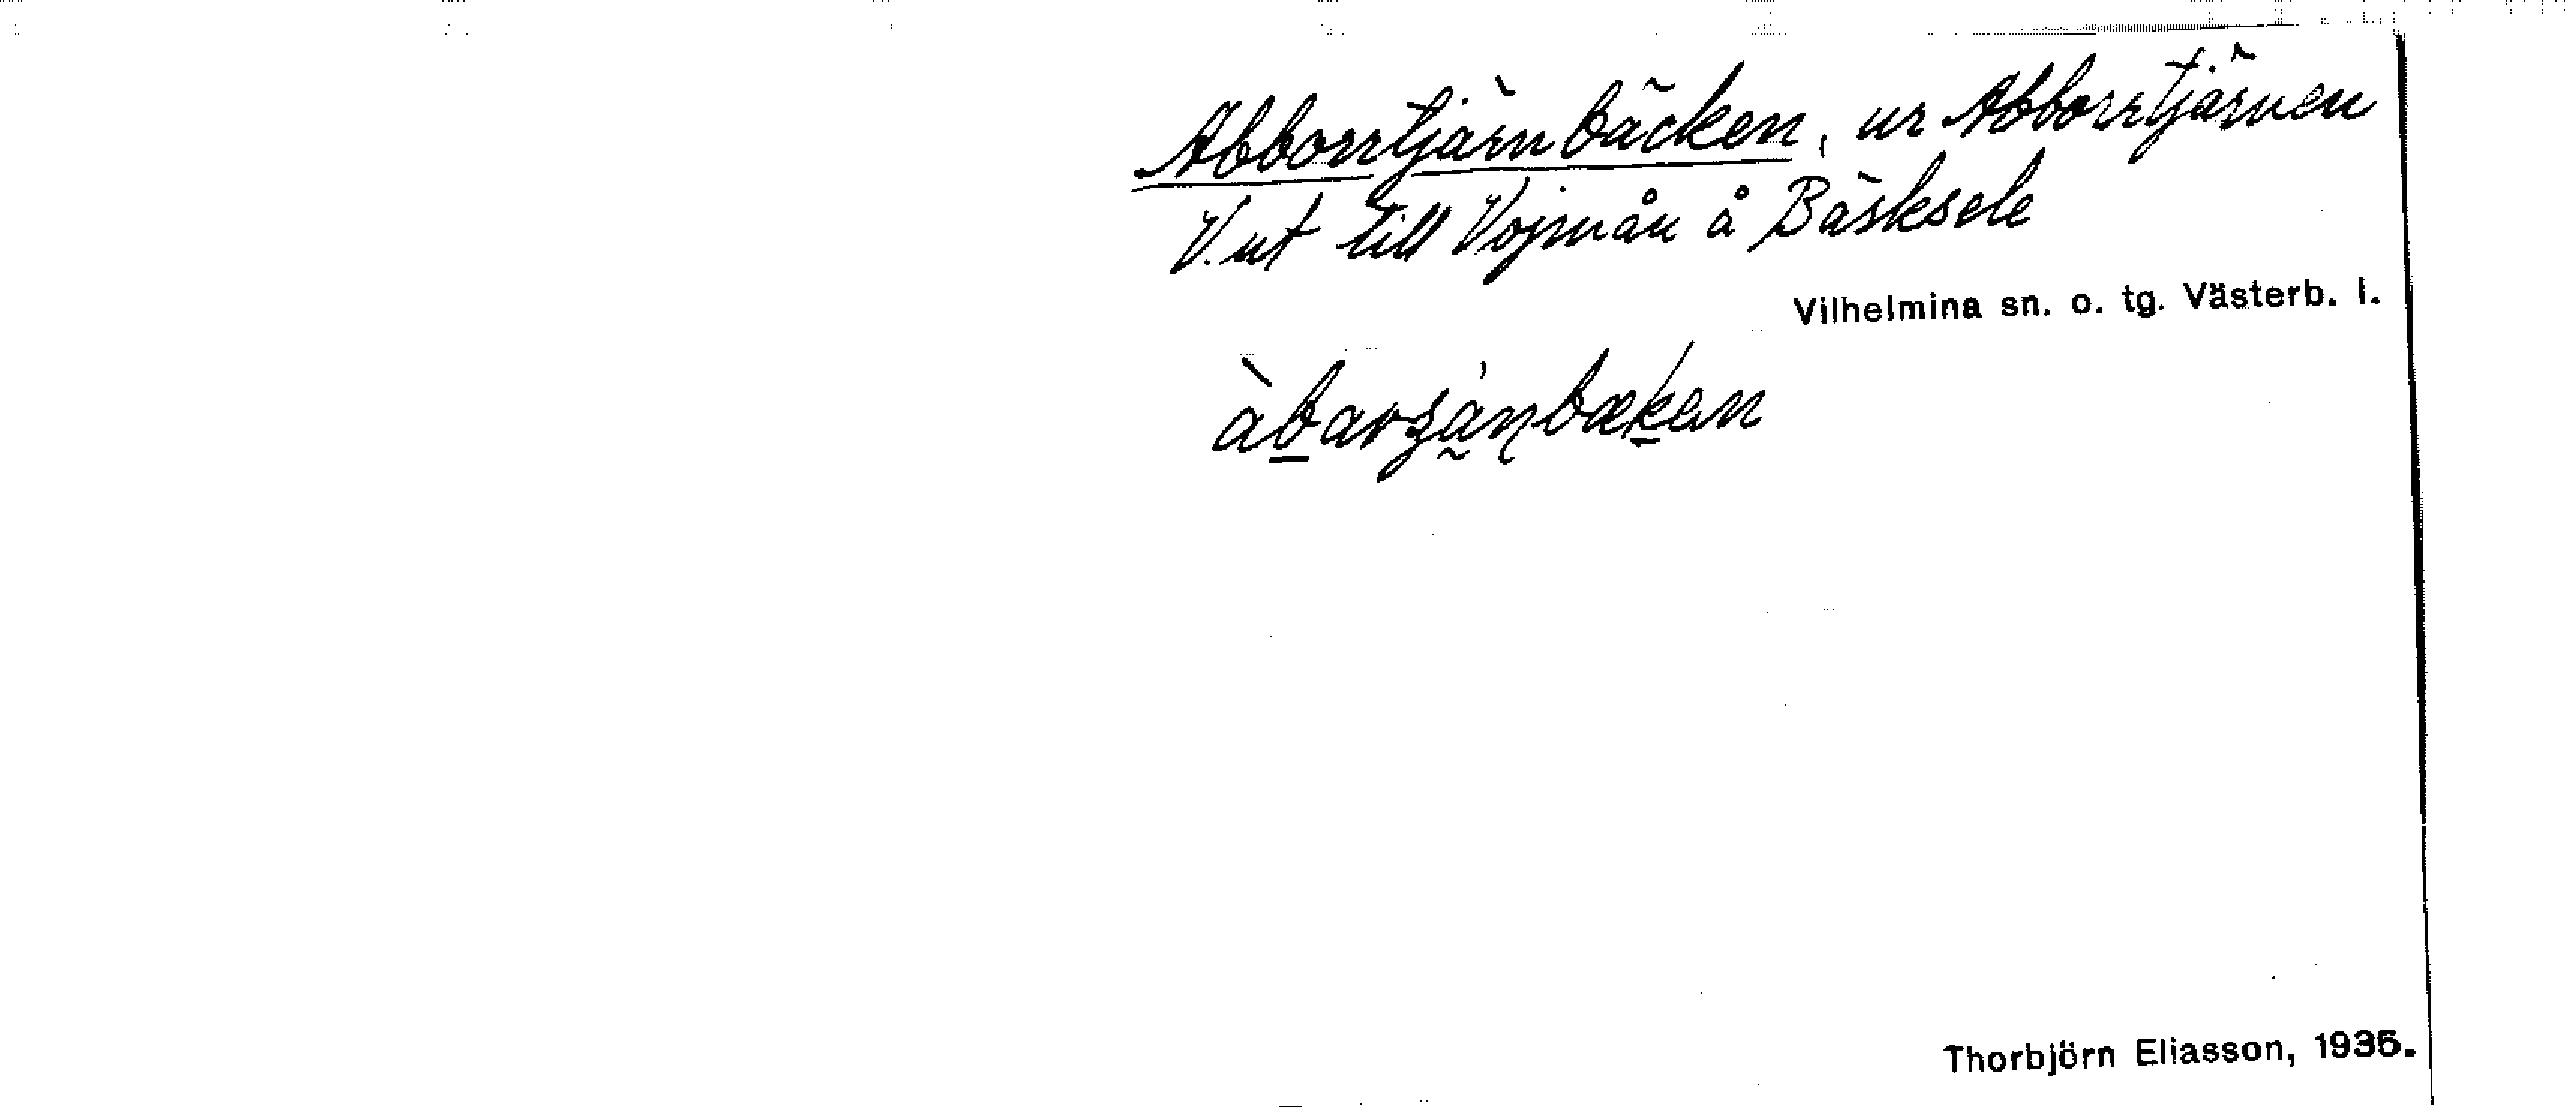 Abborrtjärnbäcken, ur Abborrtjärnen
V. ut till Vojmån å Bäsksele
Vilhelmina sn. o. tg. Västerb. l.
àbarʒánbækan
Thorbjörn Eliasson, 1935.